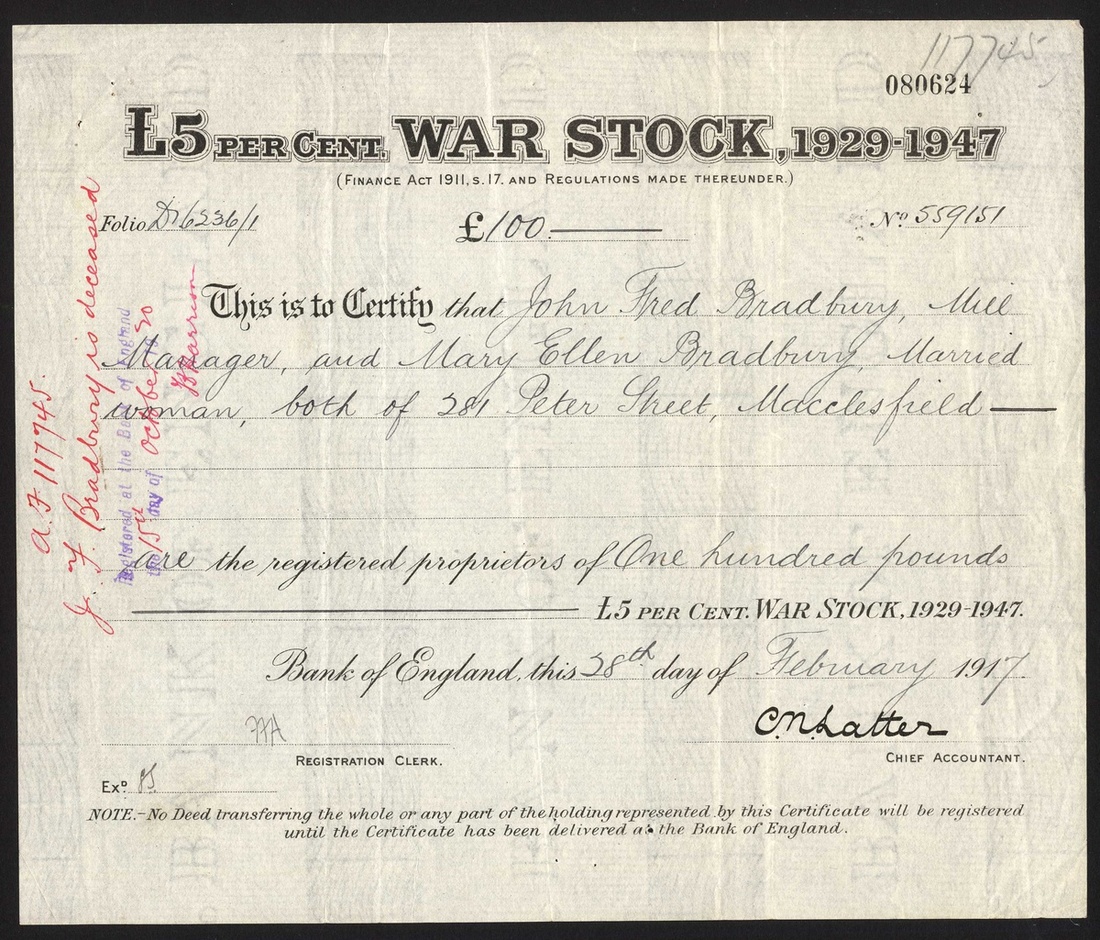 117745
080624
£5 PER CENT. WAR STOCK, 1929-1947
(FINANCE ACT 1911, S. 17. AND REGULATIONS MADE THEREUNDER.)
Folio D/6236/1 £100 No 559151
This is to Certify that John Fred Bradbury, Mill
Manager, and Mary Ellen Bradbury, Married
woman, both of 281 Peter Street, Macclesfield
are the registered proprietors of One hundred pounds
£5 PER CENT. WAR STOCK, 1929-1947.
Bank of England, this 28th day of February 1917.
C.N. Latter
REGISTRATION CLERK. CHIEF ACCOUNTANT.
Exd.
NOTE.-No Deed transferring the whole or any part of the holding represented by this Certificate will be registered
until the Certificate has been delivered at the Bank of England.
A.F 117745.
J. F. Bradbury is deceased
Registered at the Bank of England
the 15th day of October 19